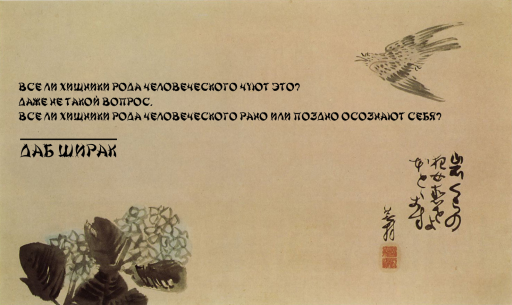 ВСЕ ЛИ ХИЩНИКИ РОДА ЧЕЛОВЕЧЕСКОГО ЧУЮТ ЭТО?
ДАЖЕ НЕ ТАКОЙ ВОПРОС.
ВСЕ ЛИ ХИЩНИКИ РОДА ЧЕЛОВЕЧЕСКОГО РАНО ИЛИ ПОЗДНО ОСОЗНАЮТ СЕБЯ?
ДАБ ШИРАК
岩くらの